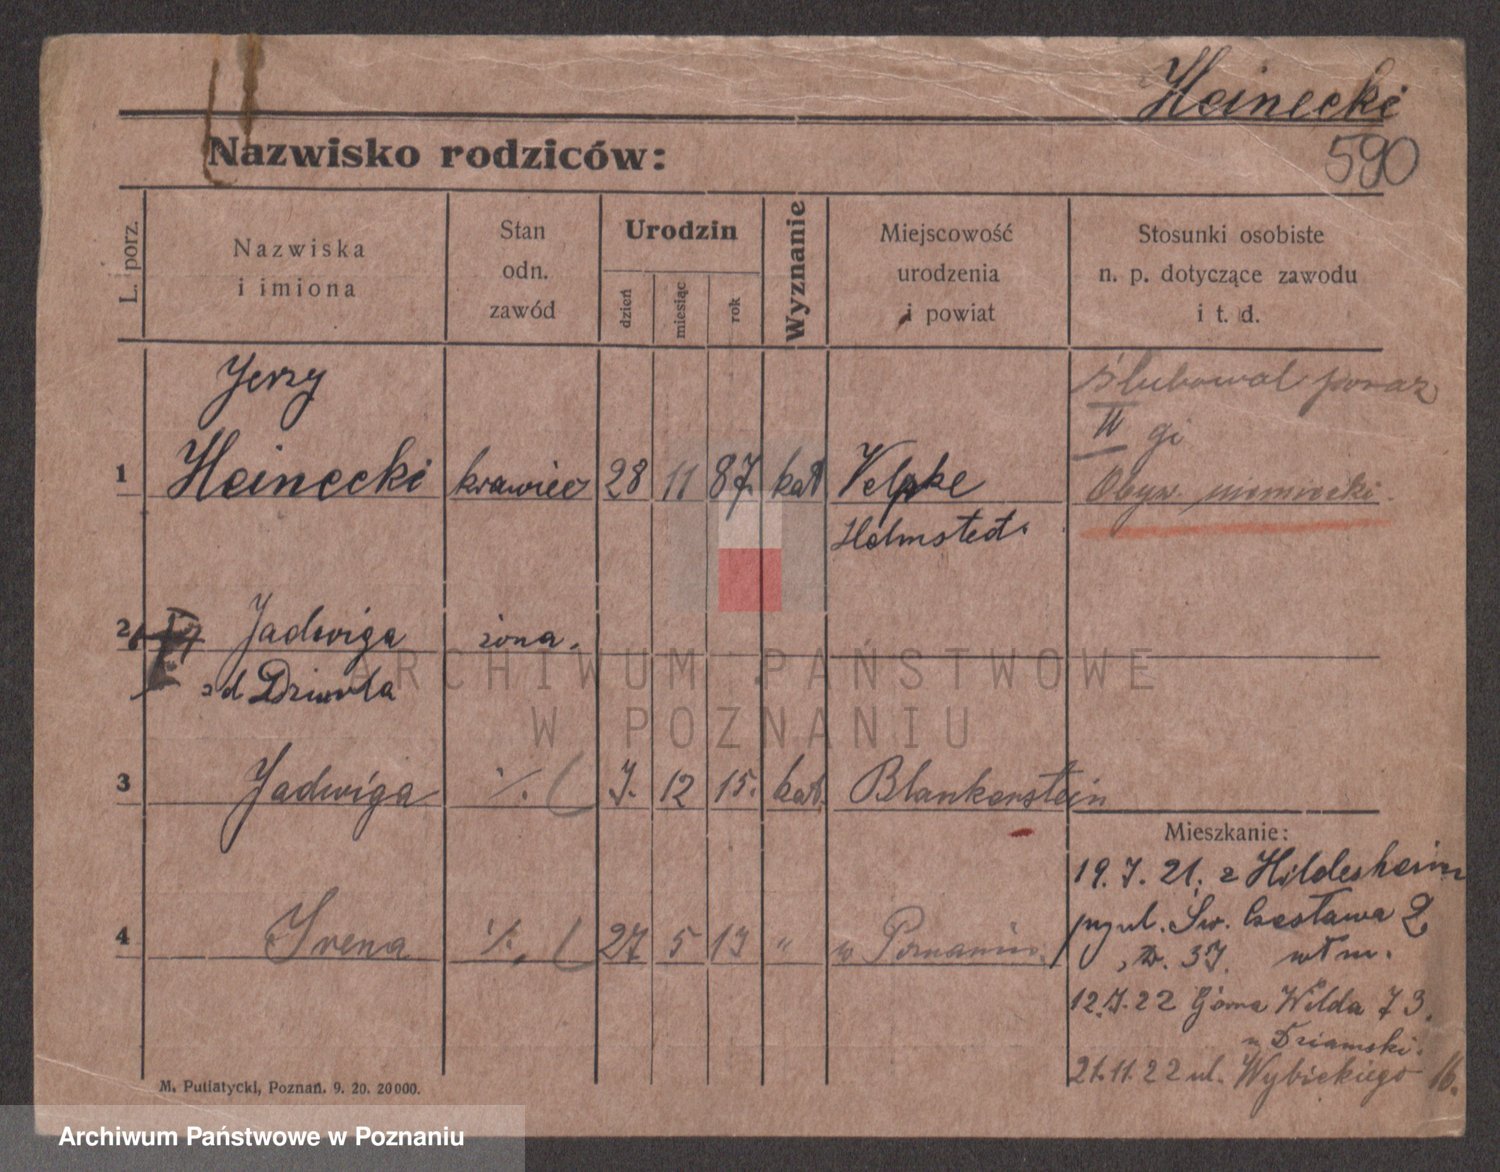 Heinecki
590
Nazwisko rodziców:
L. porz.
Nazwiska i imiona
Stan odn. zawód
Urodzin
dzień
miesiąc
rok
Wyznanie
Miejscowość urodzenia i powiat
Stosunki osobiste n. p. dotyczące zawodu i t. d.
Jerzy
1 Heinecki krawiec 28 11 87. kat Velpke
Helmstedt.
ślubował poraz
II gi
Obyw. niemiecki.
2 Jadwiga żona.
zd
3 Jadwiga %. 7. 12 15. kat. Blankenstein
4 Irena %. 27 5 13 " w Poznaniu.
Mieszkanie:
19.7.21. z Hildesheim
ul. Św. Czesława 2
12.7.22 Górna Wilda 73.
u Dziamski.
21.11.22 ul. Wybickiego 16.
M. Putiatycki, Poznań. 9. 20. 20000.
ARCHIWUM PAŃSTWOWE
W POZNANIU
Archiwum Państwowe w Poznaniu